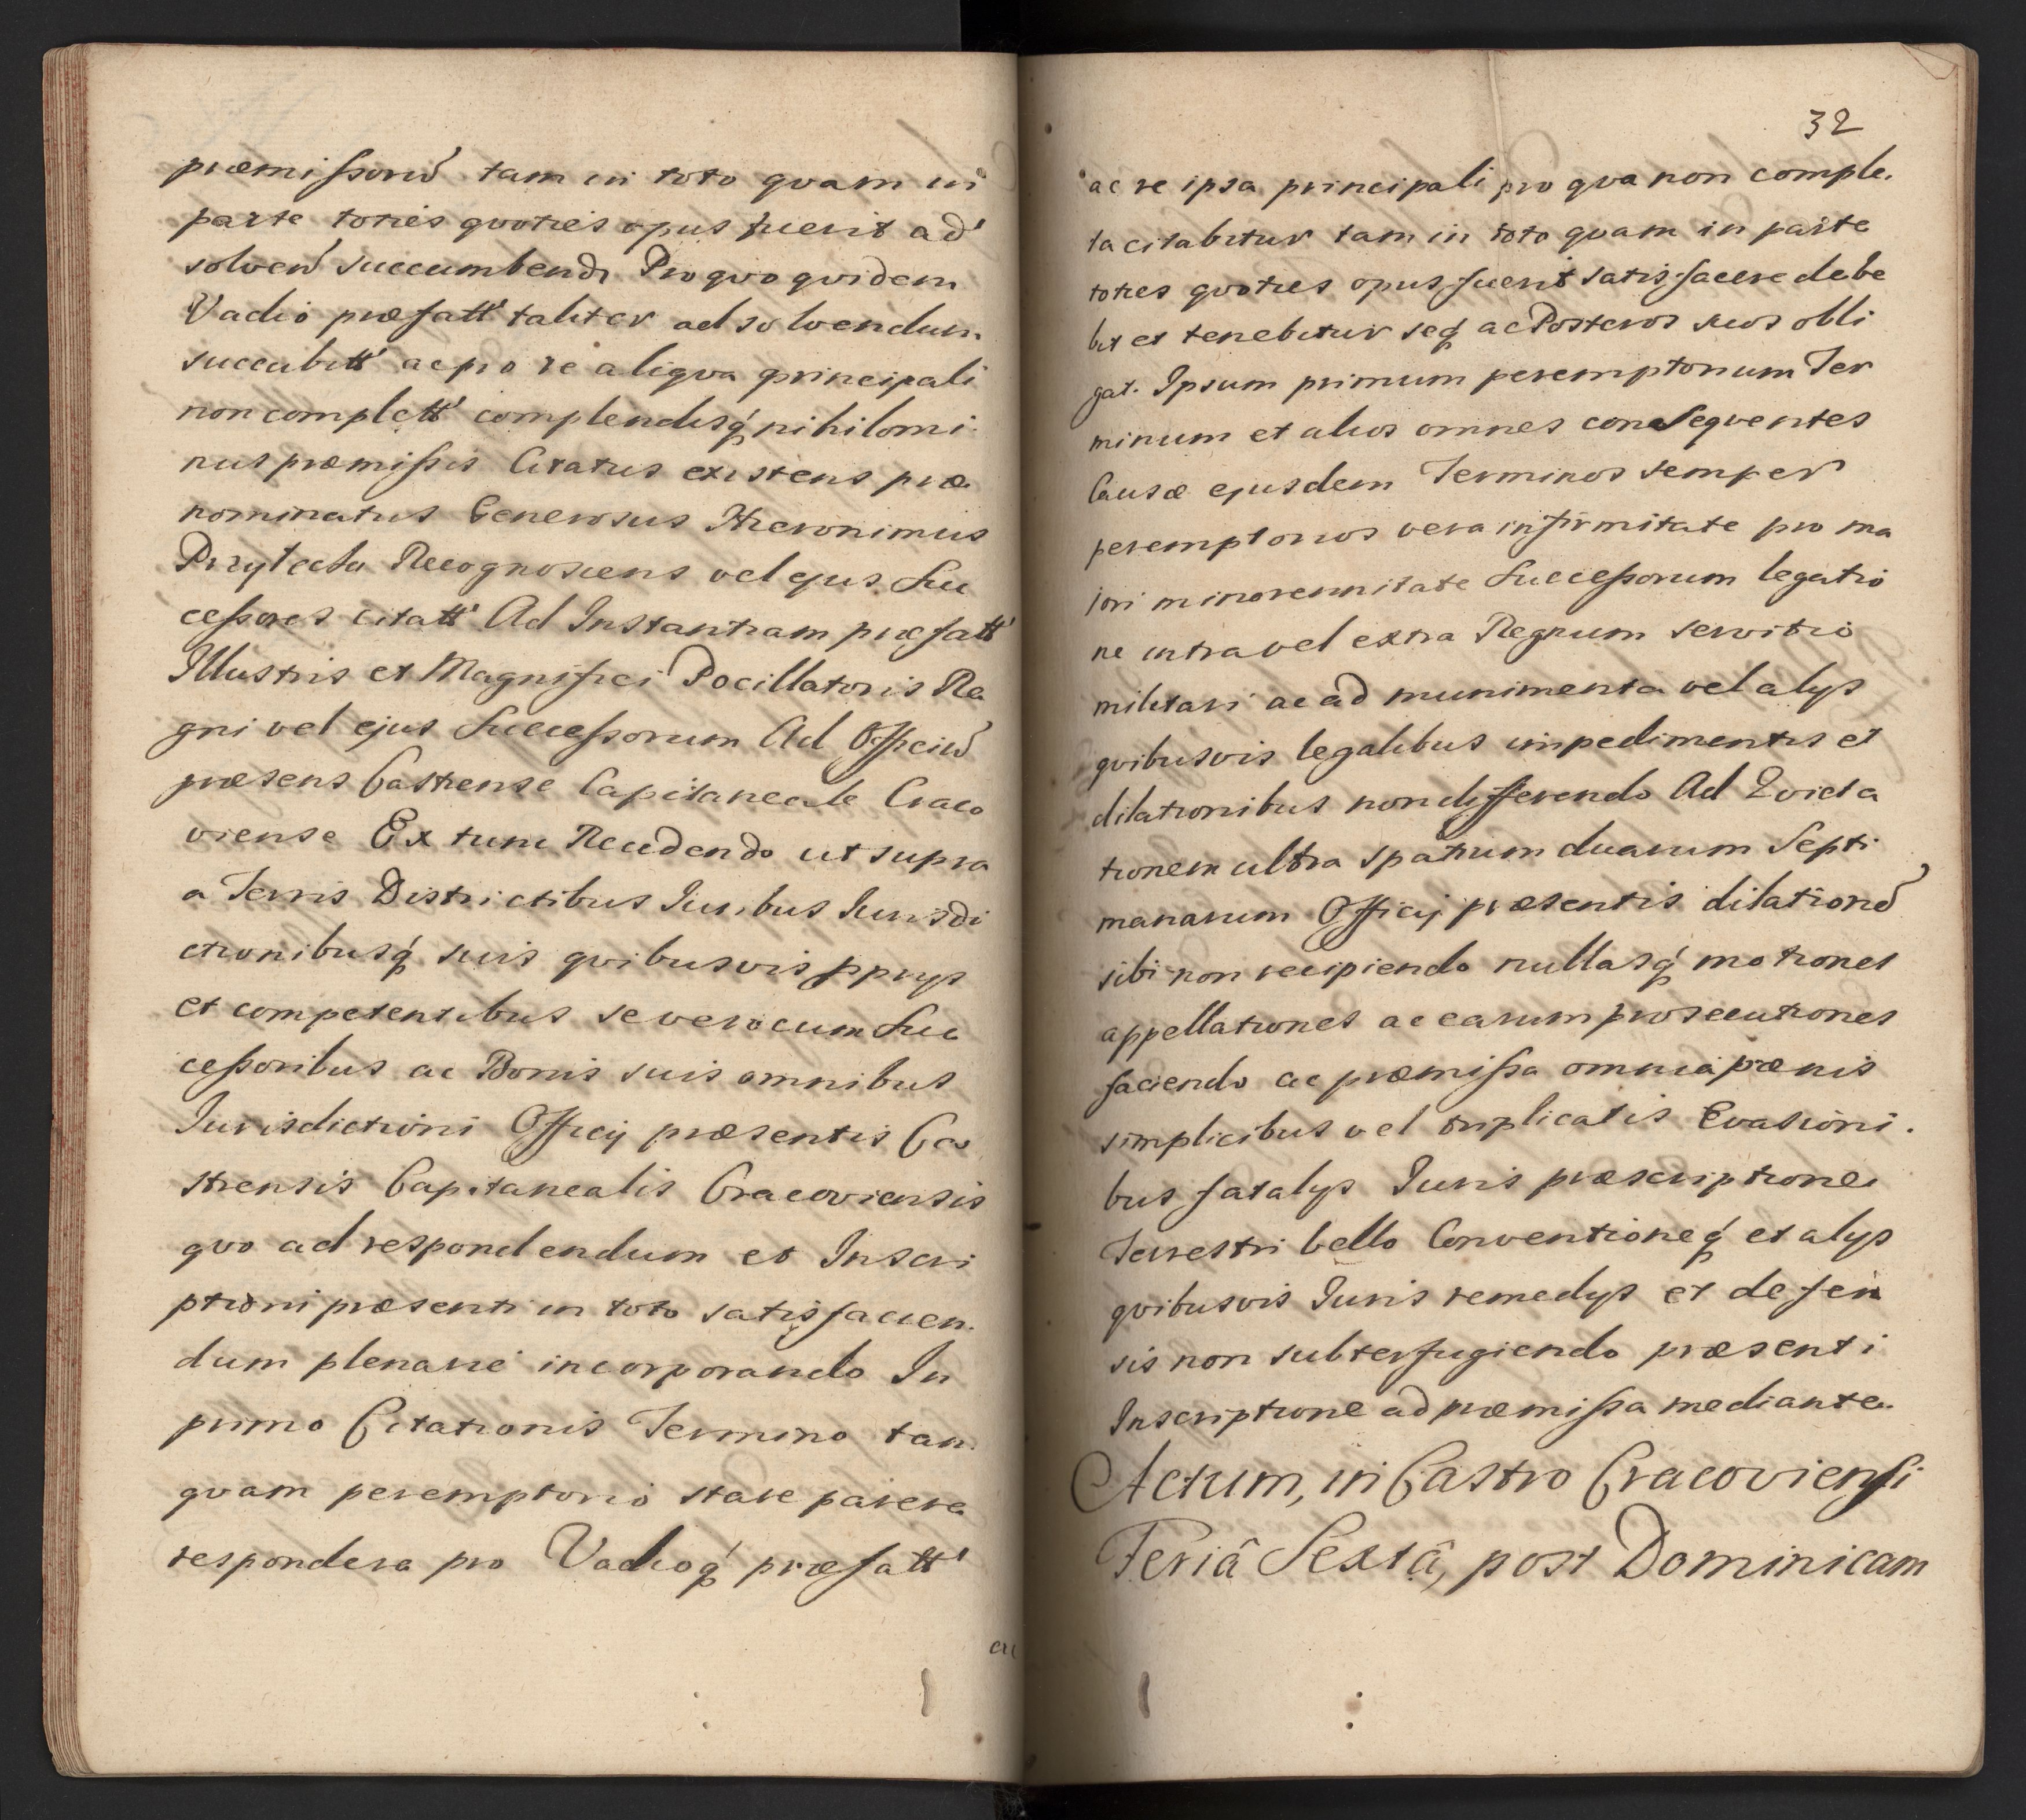 præmissorū tam in toto qvam in
parte toties qvoties opus fuerit ad
solven̄ succumbendi Pro qvo qvidem
Vadio præfatt' taliter ad solvendum
succubitt' ac pro re aliqva principali
non complett' complendisq́ nihilomi-
nus præmissis Citatus existens præ
nominatus Generosus Hieronimus
Przyłęcki Recognoscens vel ejus Suc
cessores citatt' Ad Instantiam præfatt'
Illustris et Magnifici Pocillatoris Re
gni vel ejus Successorum Ad Officiū
præsens Castrense Capitaneale Craco
viense Ex tunc Recedendo ut supra
a Terris Districtibus Iuribus Iurisdi
ctionibusq́ suis qvibusvis pprys
et competentibus se vero cum Suc
cessoribus ac Bonis suis omnibus
Jurisdictioni Officij præsentis Ca
strensis Capitanealis Cracoviensis
qvo ad respondendum et Inscri
ptioni præsenti in toto satisfacien-
dum plenarie incorporando In
primo Citationis Termino tan
qvam peremptorio stare parere
respondere pro Vadioq́ præfatt'
ac
32
ac re ipsa principali pro qva non comple-
ta citabitur tam in toto qvam in parte
toties qvoties opus fuerit satisfacere debe
bit et tenebitur seq́ ac Posteros suos obli
gat. Ipsum primum peremptorium Ter
minum et alios omnes conseqventes
Causæ ejusdem Terminos semper
peremptorios vera infirmitate pro ma
jori minorennitate Successorum legatio
ne intra vel extra Regnum servitio
militari ac ad munimenta vel alys
qvibusvis legalibus impedimentis et
dilationibus non differendo Ad Evicta
tionem ultra spatium duarum Septi
manarum Officij præsentis dilationē
sibi non recipiendo nullasq́ motiones
appellationes ac earum prosecutiones
faciendo ac præmissa omnia pænis
simplicibus vel triplicatis Evasioni-
bus fatalys Juris præscriptione
Terrestri bello Conventioneq́ et alys
qvibusvis Juris remedys et defen
sis non subterfugiendo præsenti
Inscriptione ad præmissa mediante.
Actum, in Castro Cracoviensi
Feriâ Sextâ, post Dominicam